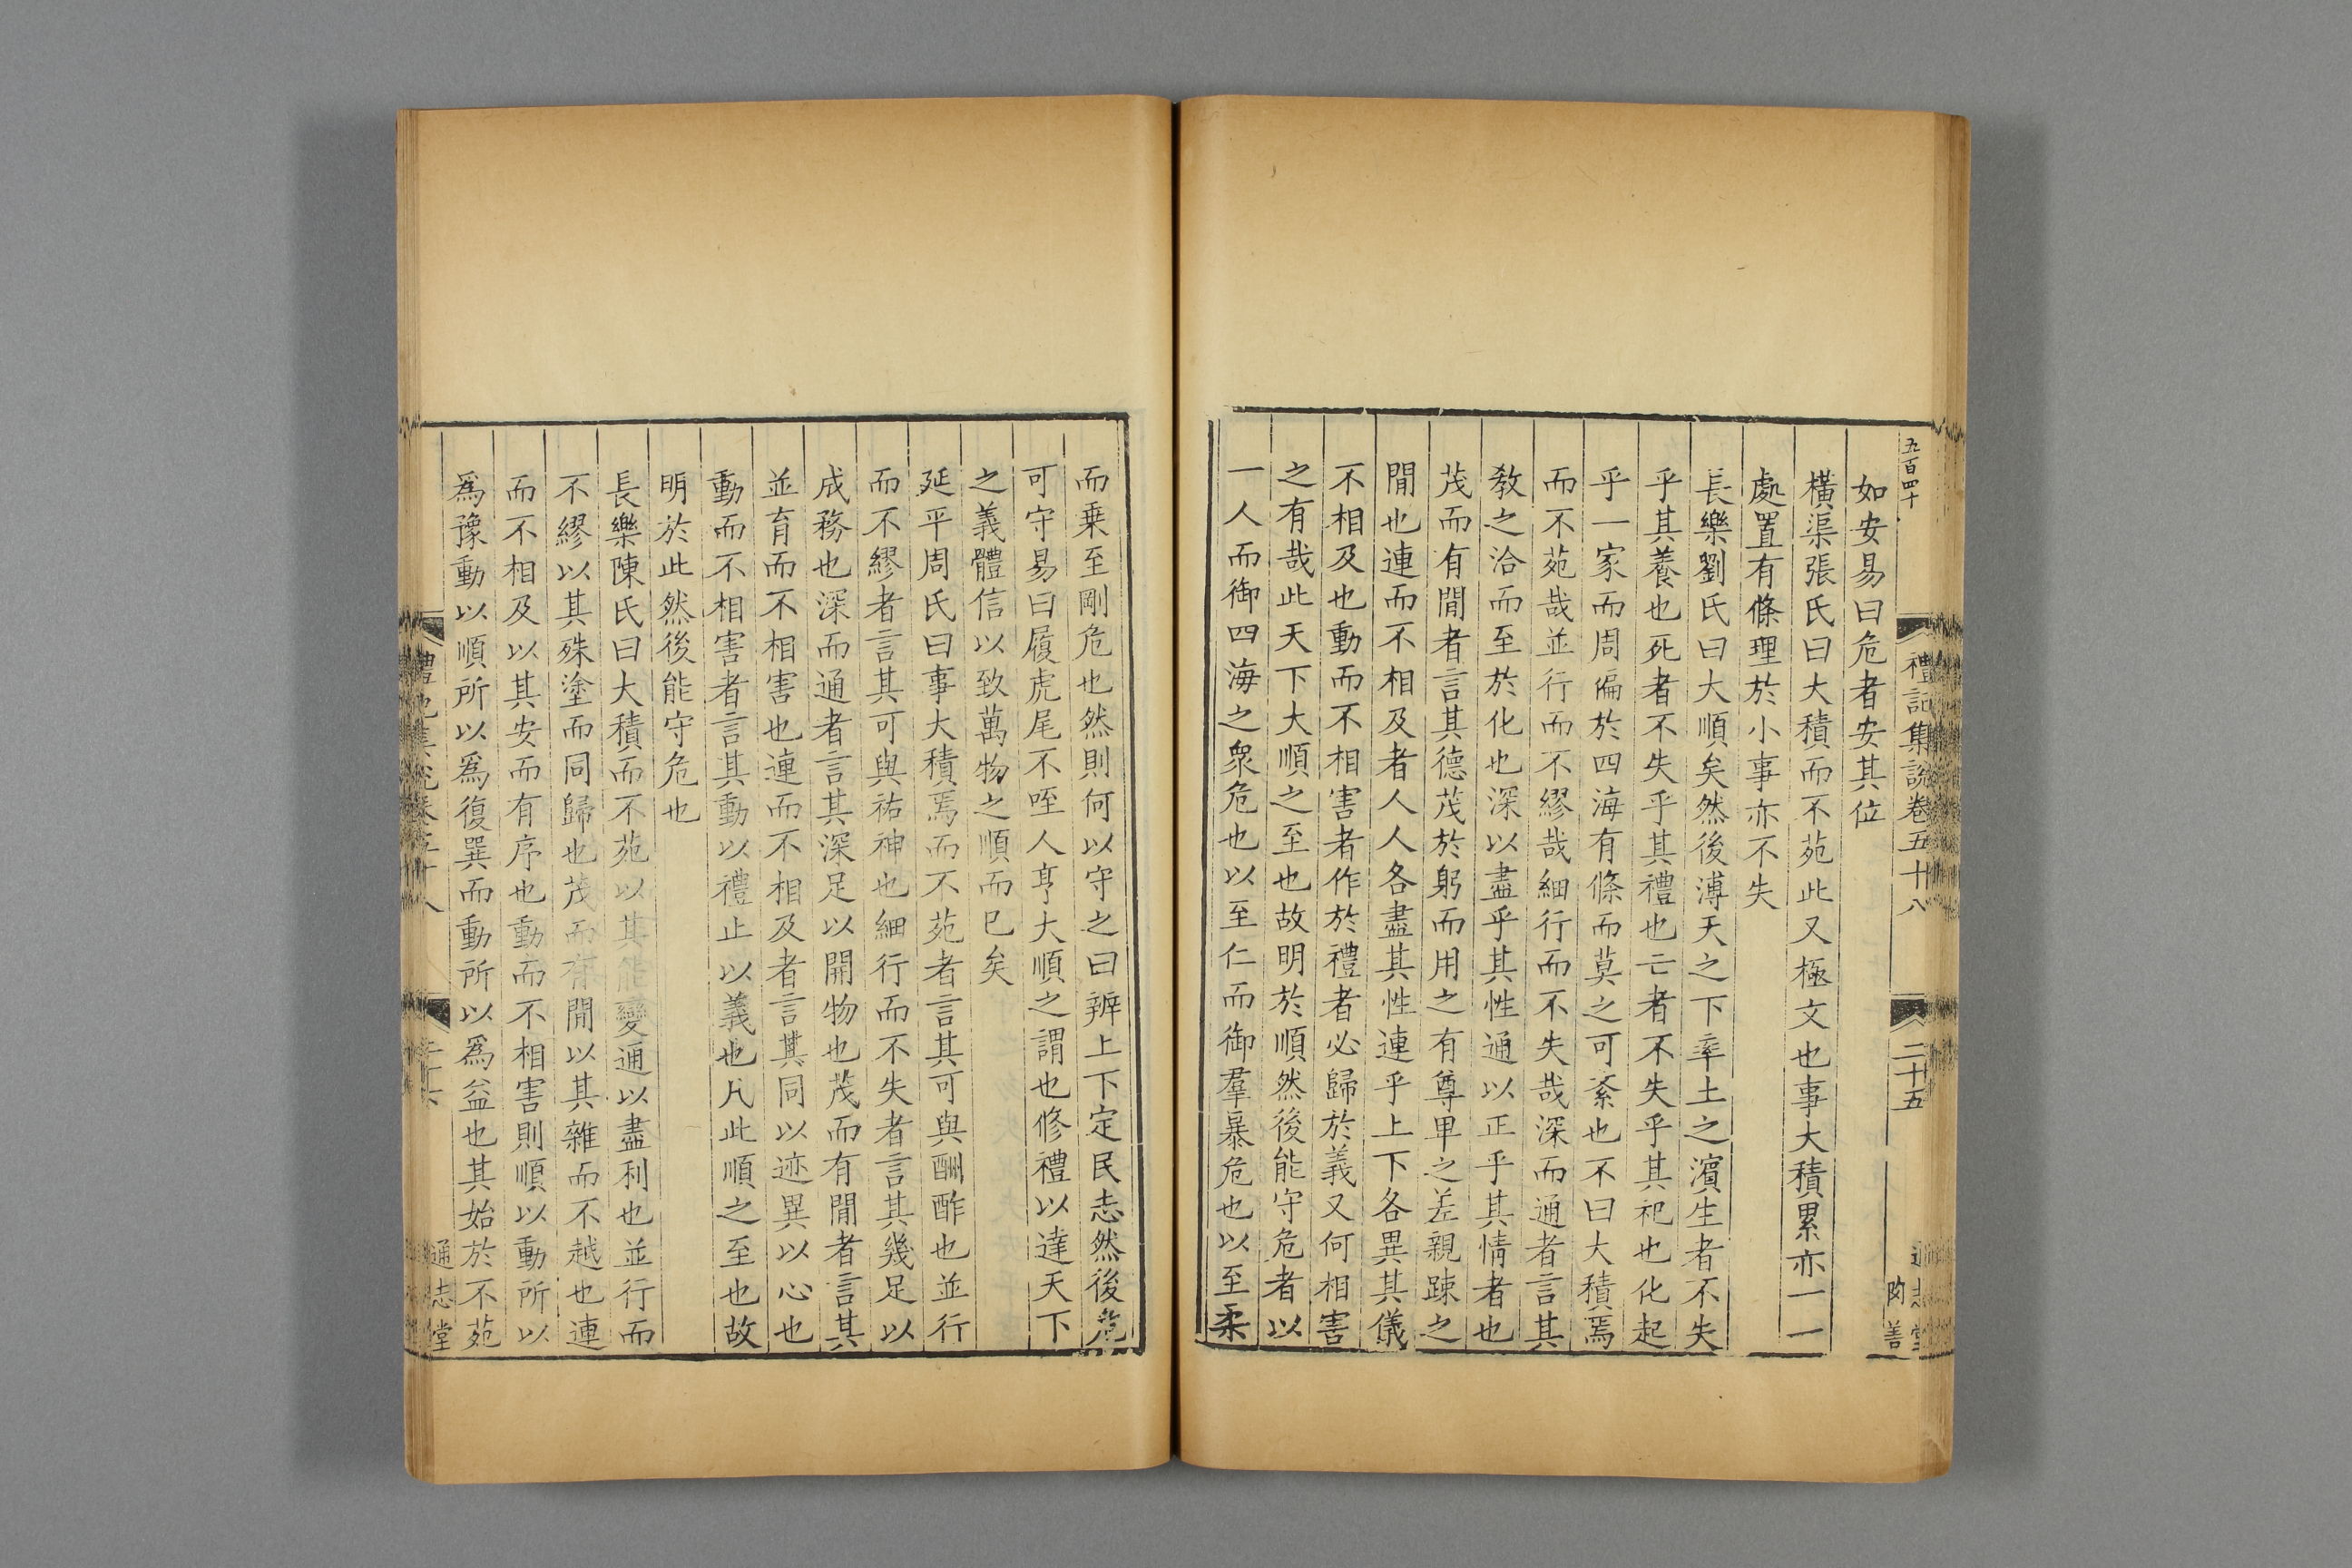 五百四十
禮記集說卷五十八
二十五
通志堂
陶善
如安易曰危者安其位
橫渠張氏曰大積而不苑此又極文也事大積累亦一一
處置有條理於小事亦不失
長樂劉氏曰大順矣然後溥天之下率土之濵生者不失
乎其養也死者不失乎其禮也亡者不失乎其祀也化起
乎一家而周徧於四海有條而莫之可紊也不曰大積焉
而不苑哉並行而不繆哉細行而不失哉深而通者言其
敎之洽而至於化也深以盡乎其性通以正乎其情者也
茂而有閒者言其德茂於躬而用之有尊卑之差親踈之
閒也連而不相及者人人各盡其性連乎上下各異其儀
不相及也動而不相害者作於禮者必歸於義又何相害
之有哉此天下大順之至也故明於順然後能守危者以
一人而御四海之衆危也以至仁而御羣暴危也以至柔
而乗至剛危也然則何以守之曰辨上下定民志然後危
可守易曰履虎尾不咥人亨大順之謂也修禮以達天下
之義體信以致萬物之順而已矣
延平周氏曰事大積焉而不苑者言其可與酬酢也並行
而不繆者言其可與祐神也細行而不失者言其幾足以
成務也深而通者言其深足以開物也茂而有閒者言其
並育而不相害也連而不相及者言其同以迹異以心也
動而不相害者言其動以禮止以義也凡此順之至也故
明於此然後能守危也
長樂陳氏曰大積而不苑以其能變通以盡利也並行而
不繆以其殊塗而同歸也茂而有閒以其雜而不越也連
而不相及以其安而有序也動而不相害則順以動所以
爲豫動以順所以爲復巽而動所以爲益也其始於不苑
禮記集說卷五十八
二十六
通志堂